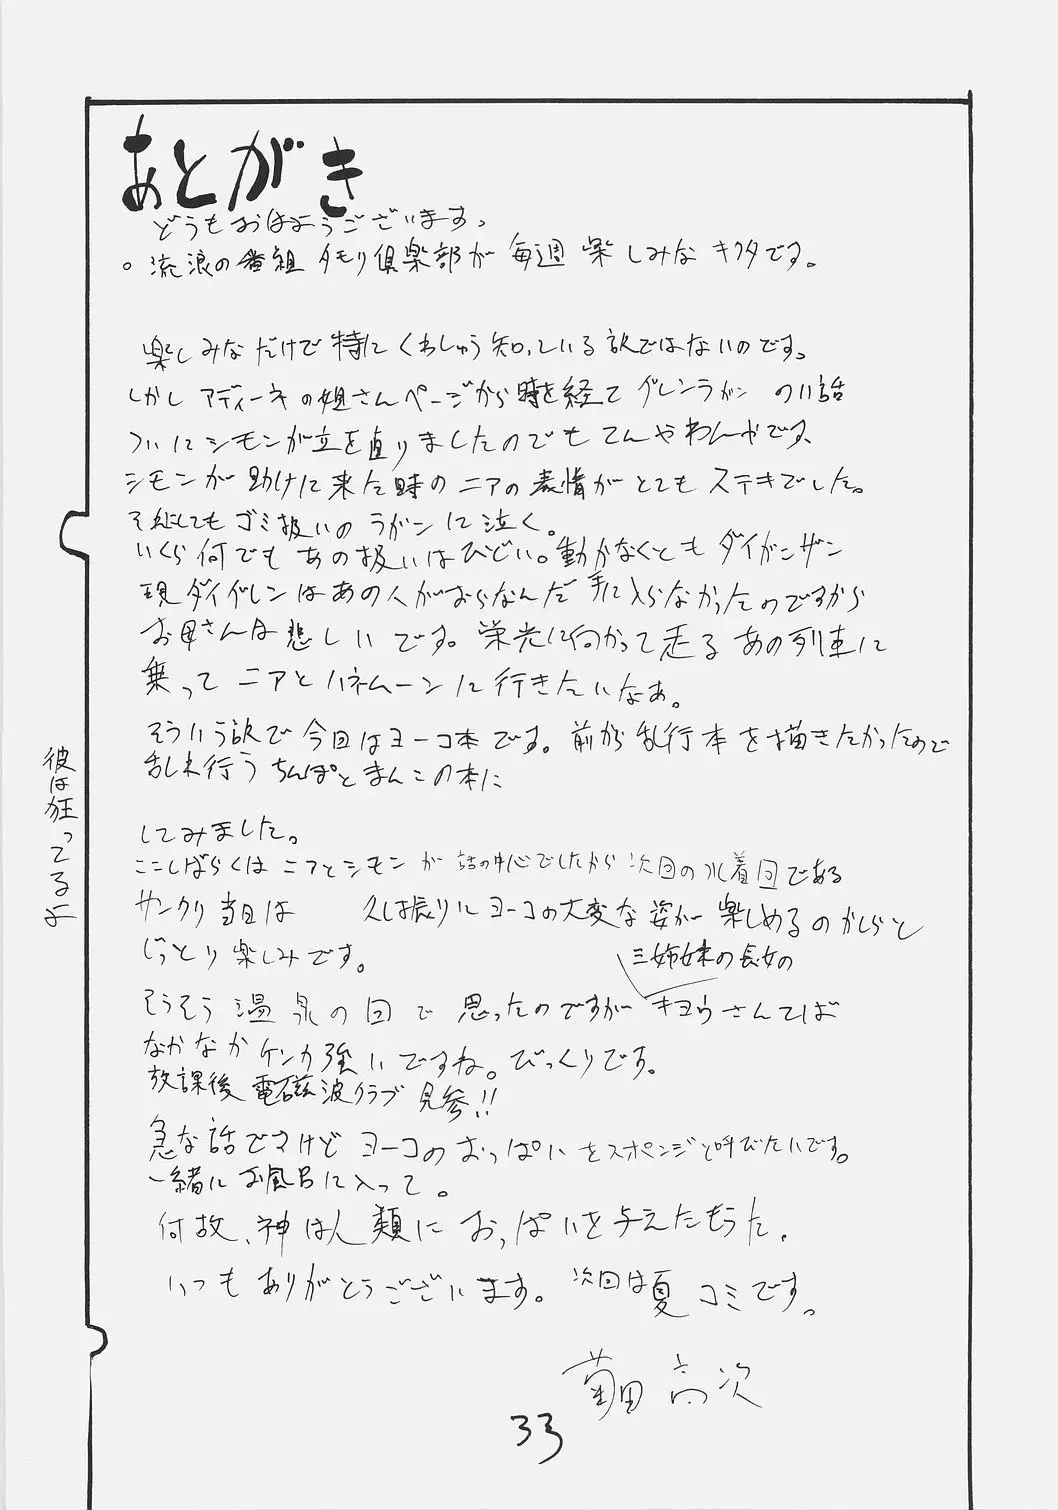 あとがき
どうもおはようございます。
。流浪の番組 タモリ倶楽部が 毎週 楽しみな キクタです。
楽しみなだけで特にくわしゅう知っている訳ではないのです。
しかし アディーネの姐さんページから時を経て グレンラガン の11話
ついにシモンが立ち直りましたのでもてんやわんやです、
シモンが助けに来た時のニアの表情がとてもステキでした。
それにしてもゴミ扱いのラガンに泣く。
いくら何でもあの扱いはひどい。動かなくともダイガンザン
現ダイグレンはあの人がおらなんだ手に入らなかったのですから
お母さんは悲しいです。栄光に向かって走るあの列車に
乗ってニアとハネムーンに行きたいなぁ。
そういう訳で今回はヨーコ本です。前から乱行本を描きたかったので
乱れ行うちんぽとまんこの本に
してみました。
ここしばらくはニアとシモンが話の中心でしたから次回の水着回である
サンクリ当日は 久し振りにヨーコの大変な姿が楽しめるのかしらと
じっとり楽しみです。
三姉妹の長女の
そうそう温泉の回で思ったのですがキヨウさんてば
なかなかケンカ強いですね。びっくりです。
放課後電磁波クラブ見参!!
急な話ですけどヨーコのおっぱいをスポンジと呼びたいです。
一緒にお風呂に入って。
何故、神は人類におっぱいを与えたもうた。
いつもありがとうございます。次回は夏コミです。
菊田高次
33
彼は狂ってるよ